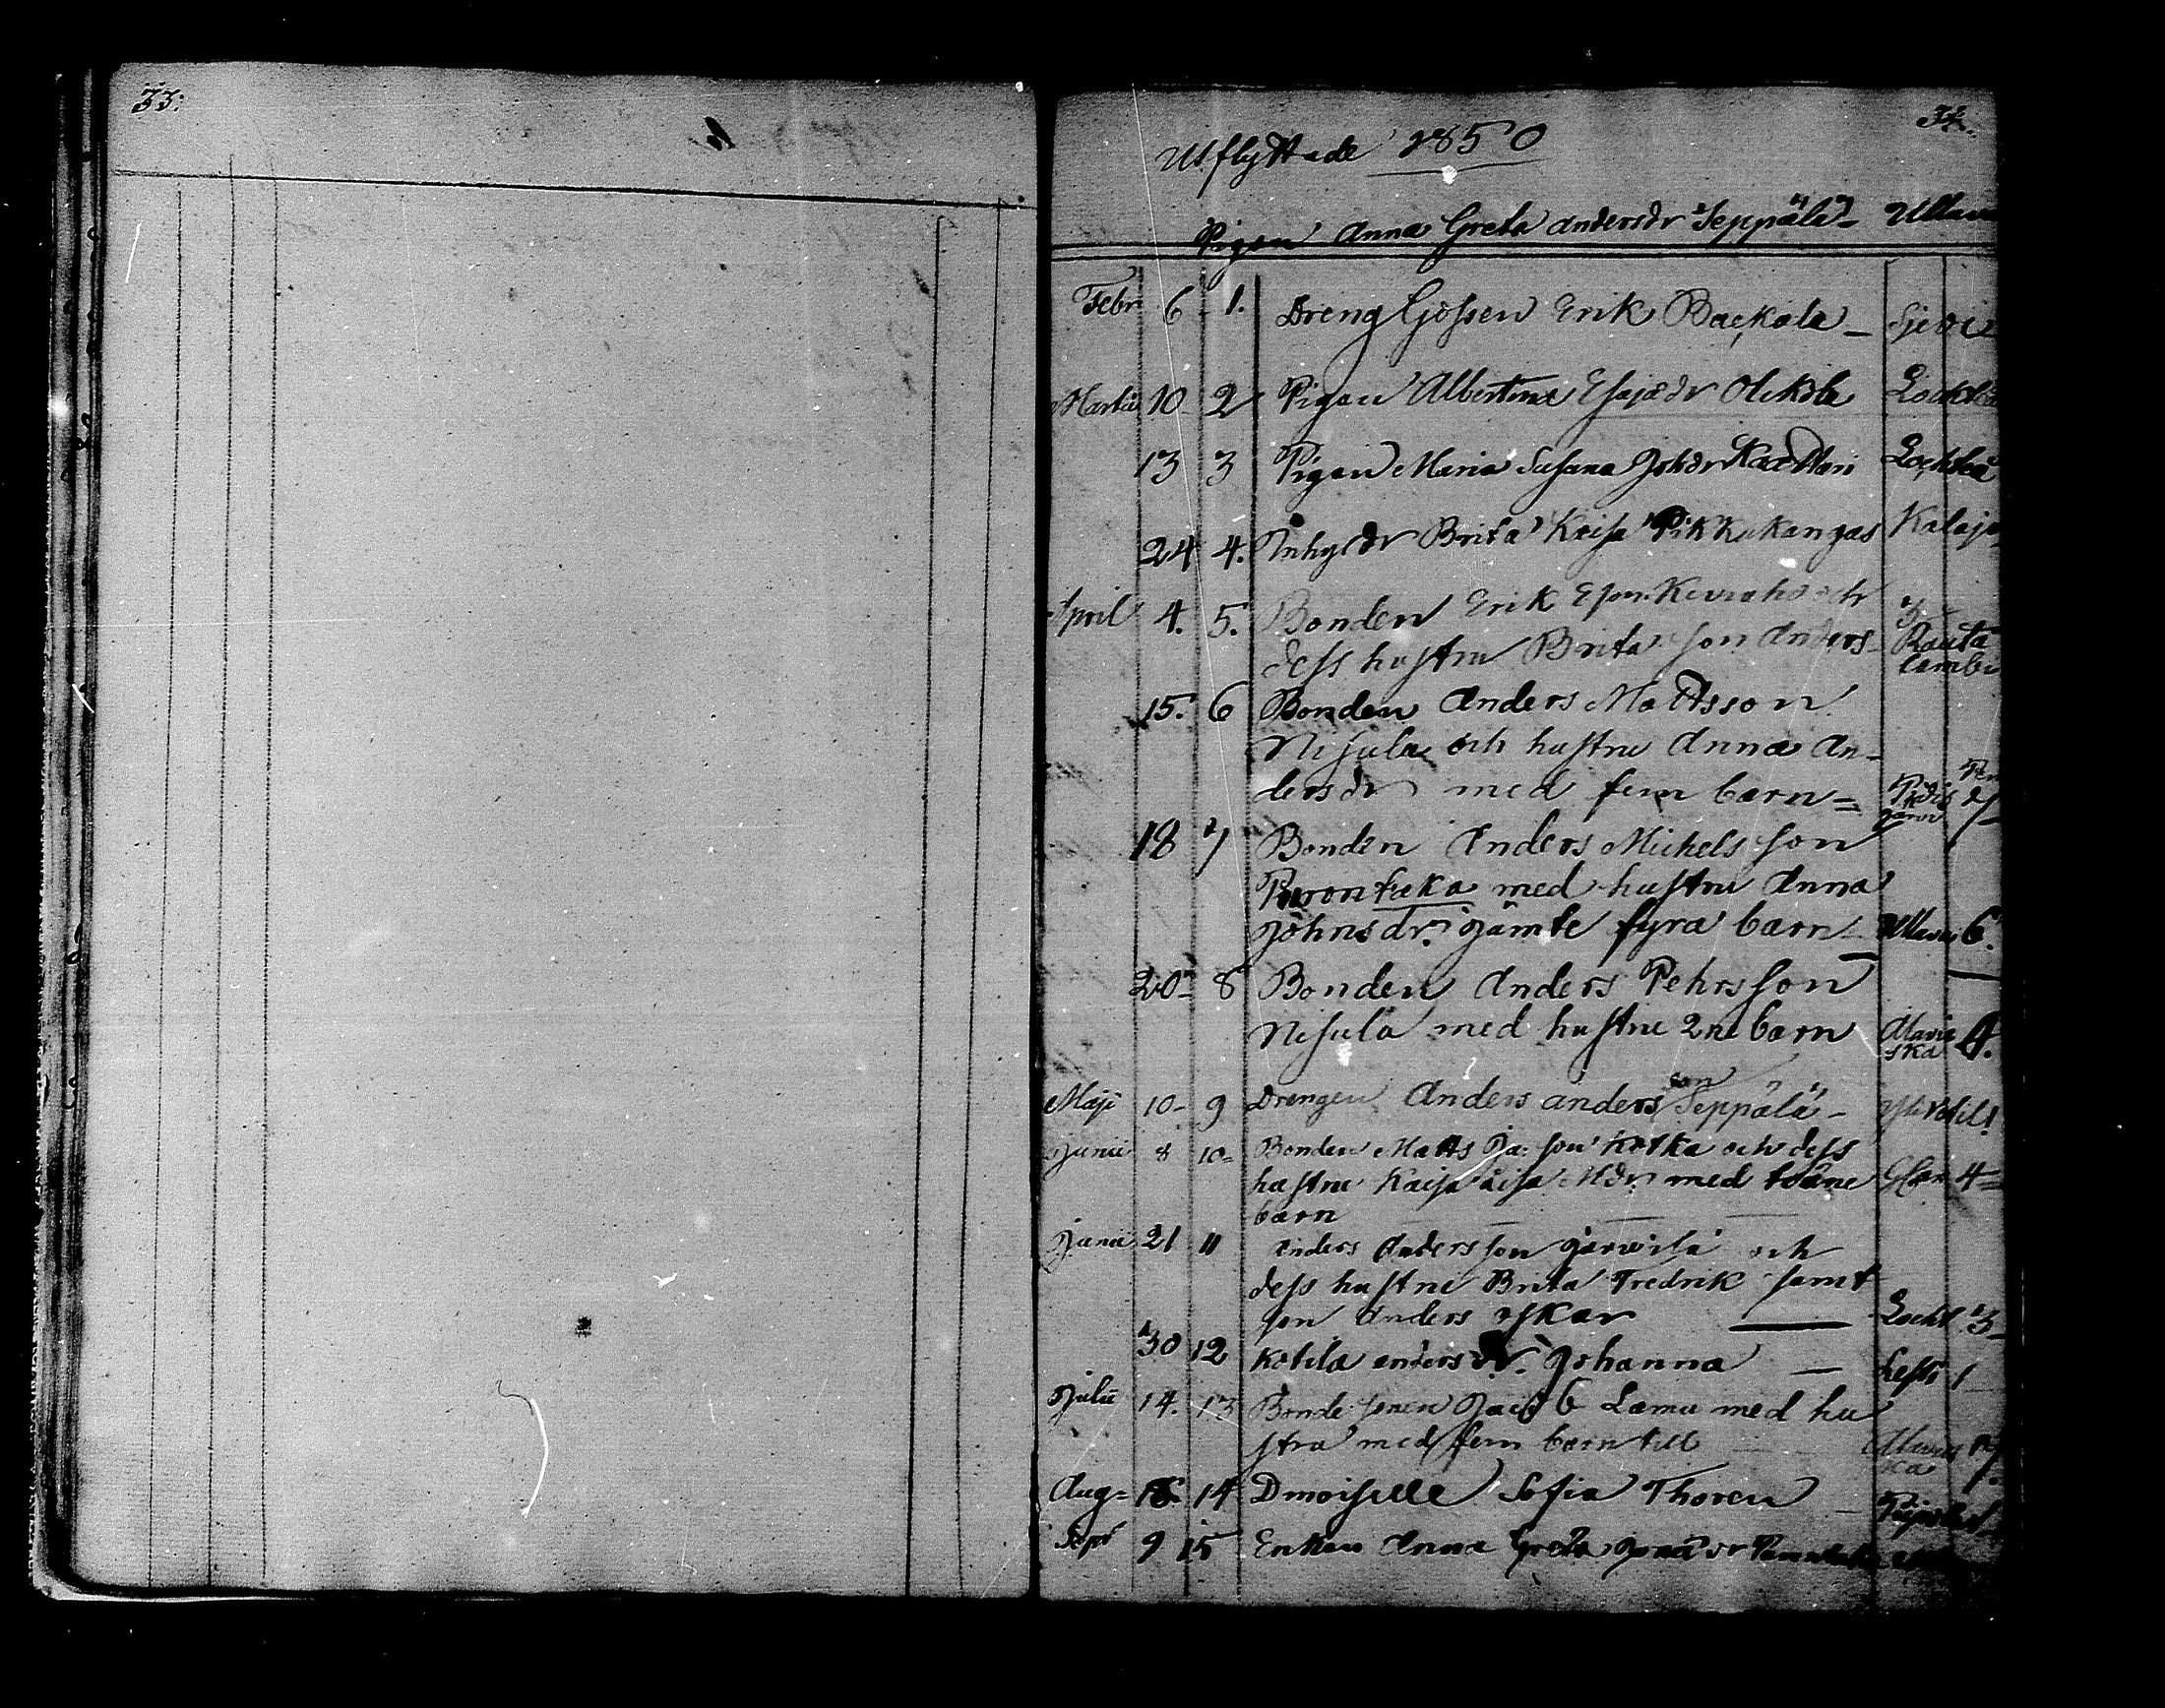 33:
34.
Utflyttade 1850
Pigan Anna Greta andersdr Seppälä - Ullava
Febr 6 1. Drenggossen Erik Backala -
Martii 10 2 Pigan Albertina Esajædr Olikala Lochteå
13 3 Pigan Maria Susana Johdr Lochteå
24 4. Inhysdr Brita Kaisa Pikkukangas Kalajo
April 4. 5. Bonden Erik och
dess hustru Brita son Anders - Rauta
lambi
15. 6 Bonden Anders Mattsson
Nisula och hustru Anna An-
dersdr med fem barn = Pädis 7
18 7 Bonden Anders Michels son
med hustru Anna
Johnsdr. jämte fyra barn - Ullava 6.
20 - 8 Bonden Anders Pehrsson
Nisula med hustru 2ne barn Alavie
ska 4.
Maji 10 - 9 Drengen Anders anders son Seppälä -
Junii 8 10 = Bonden Matts Ja: son Kotka och dess
hustru Kaisa Lisa Mdr med tvänne 4 =
barn
Junii 21 11 Anders Andersson och
dess hustru Brita Fredrik samt
son Anders oskar Locht 3 -
30 12 Kotila anders dr. Johanna - Lesti 1
Julii 14. 13 Bonde sonen Jacob Lamu med hu
stru med fem barn till Alavies
ka 7.
Aug = 14 Dmoiselle Sofia Thoren -
Sept 9 15 Enkan Anna Greta